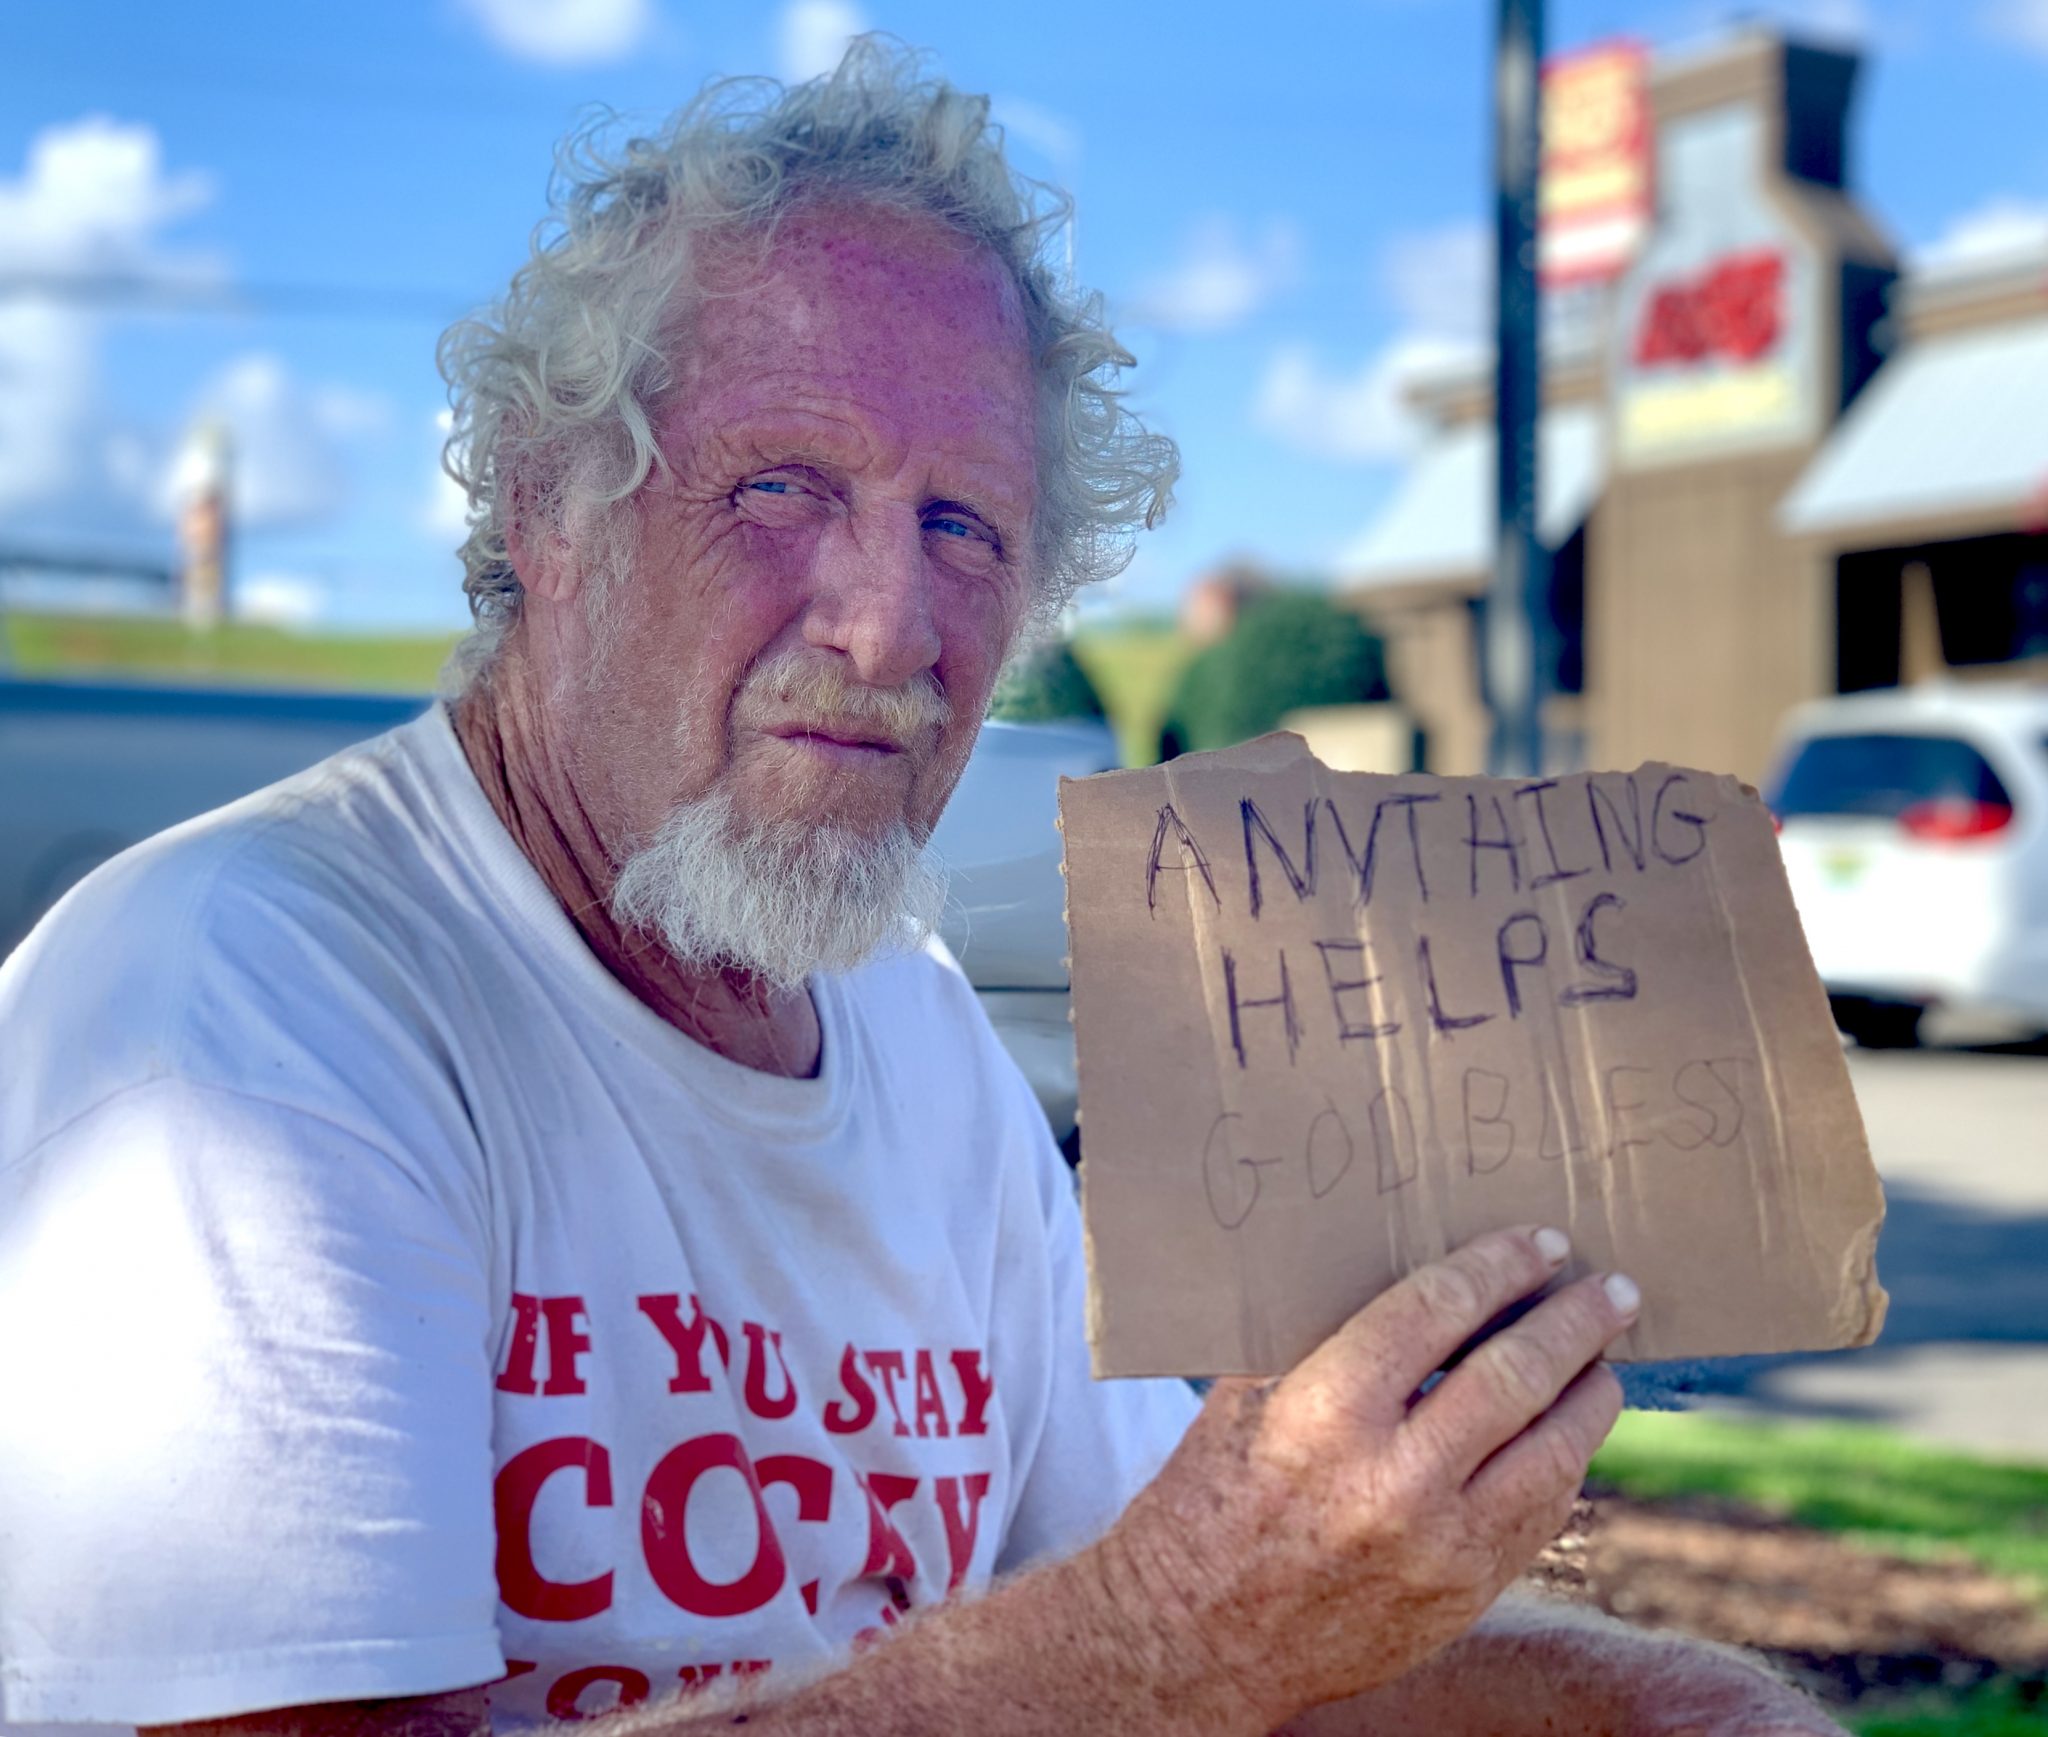 ANYTHING
HELPS
GOD BLESS
IF YOU STAY
COCKY